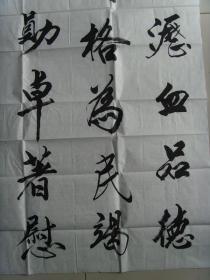 瀝血品德
格為民竭
勛卓著慰